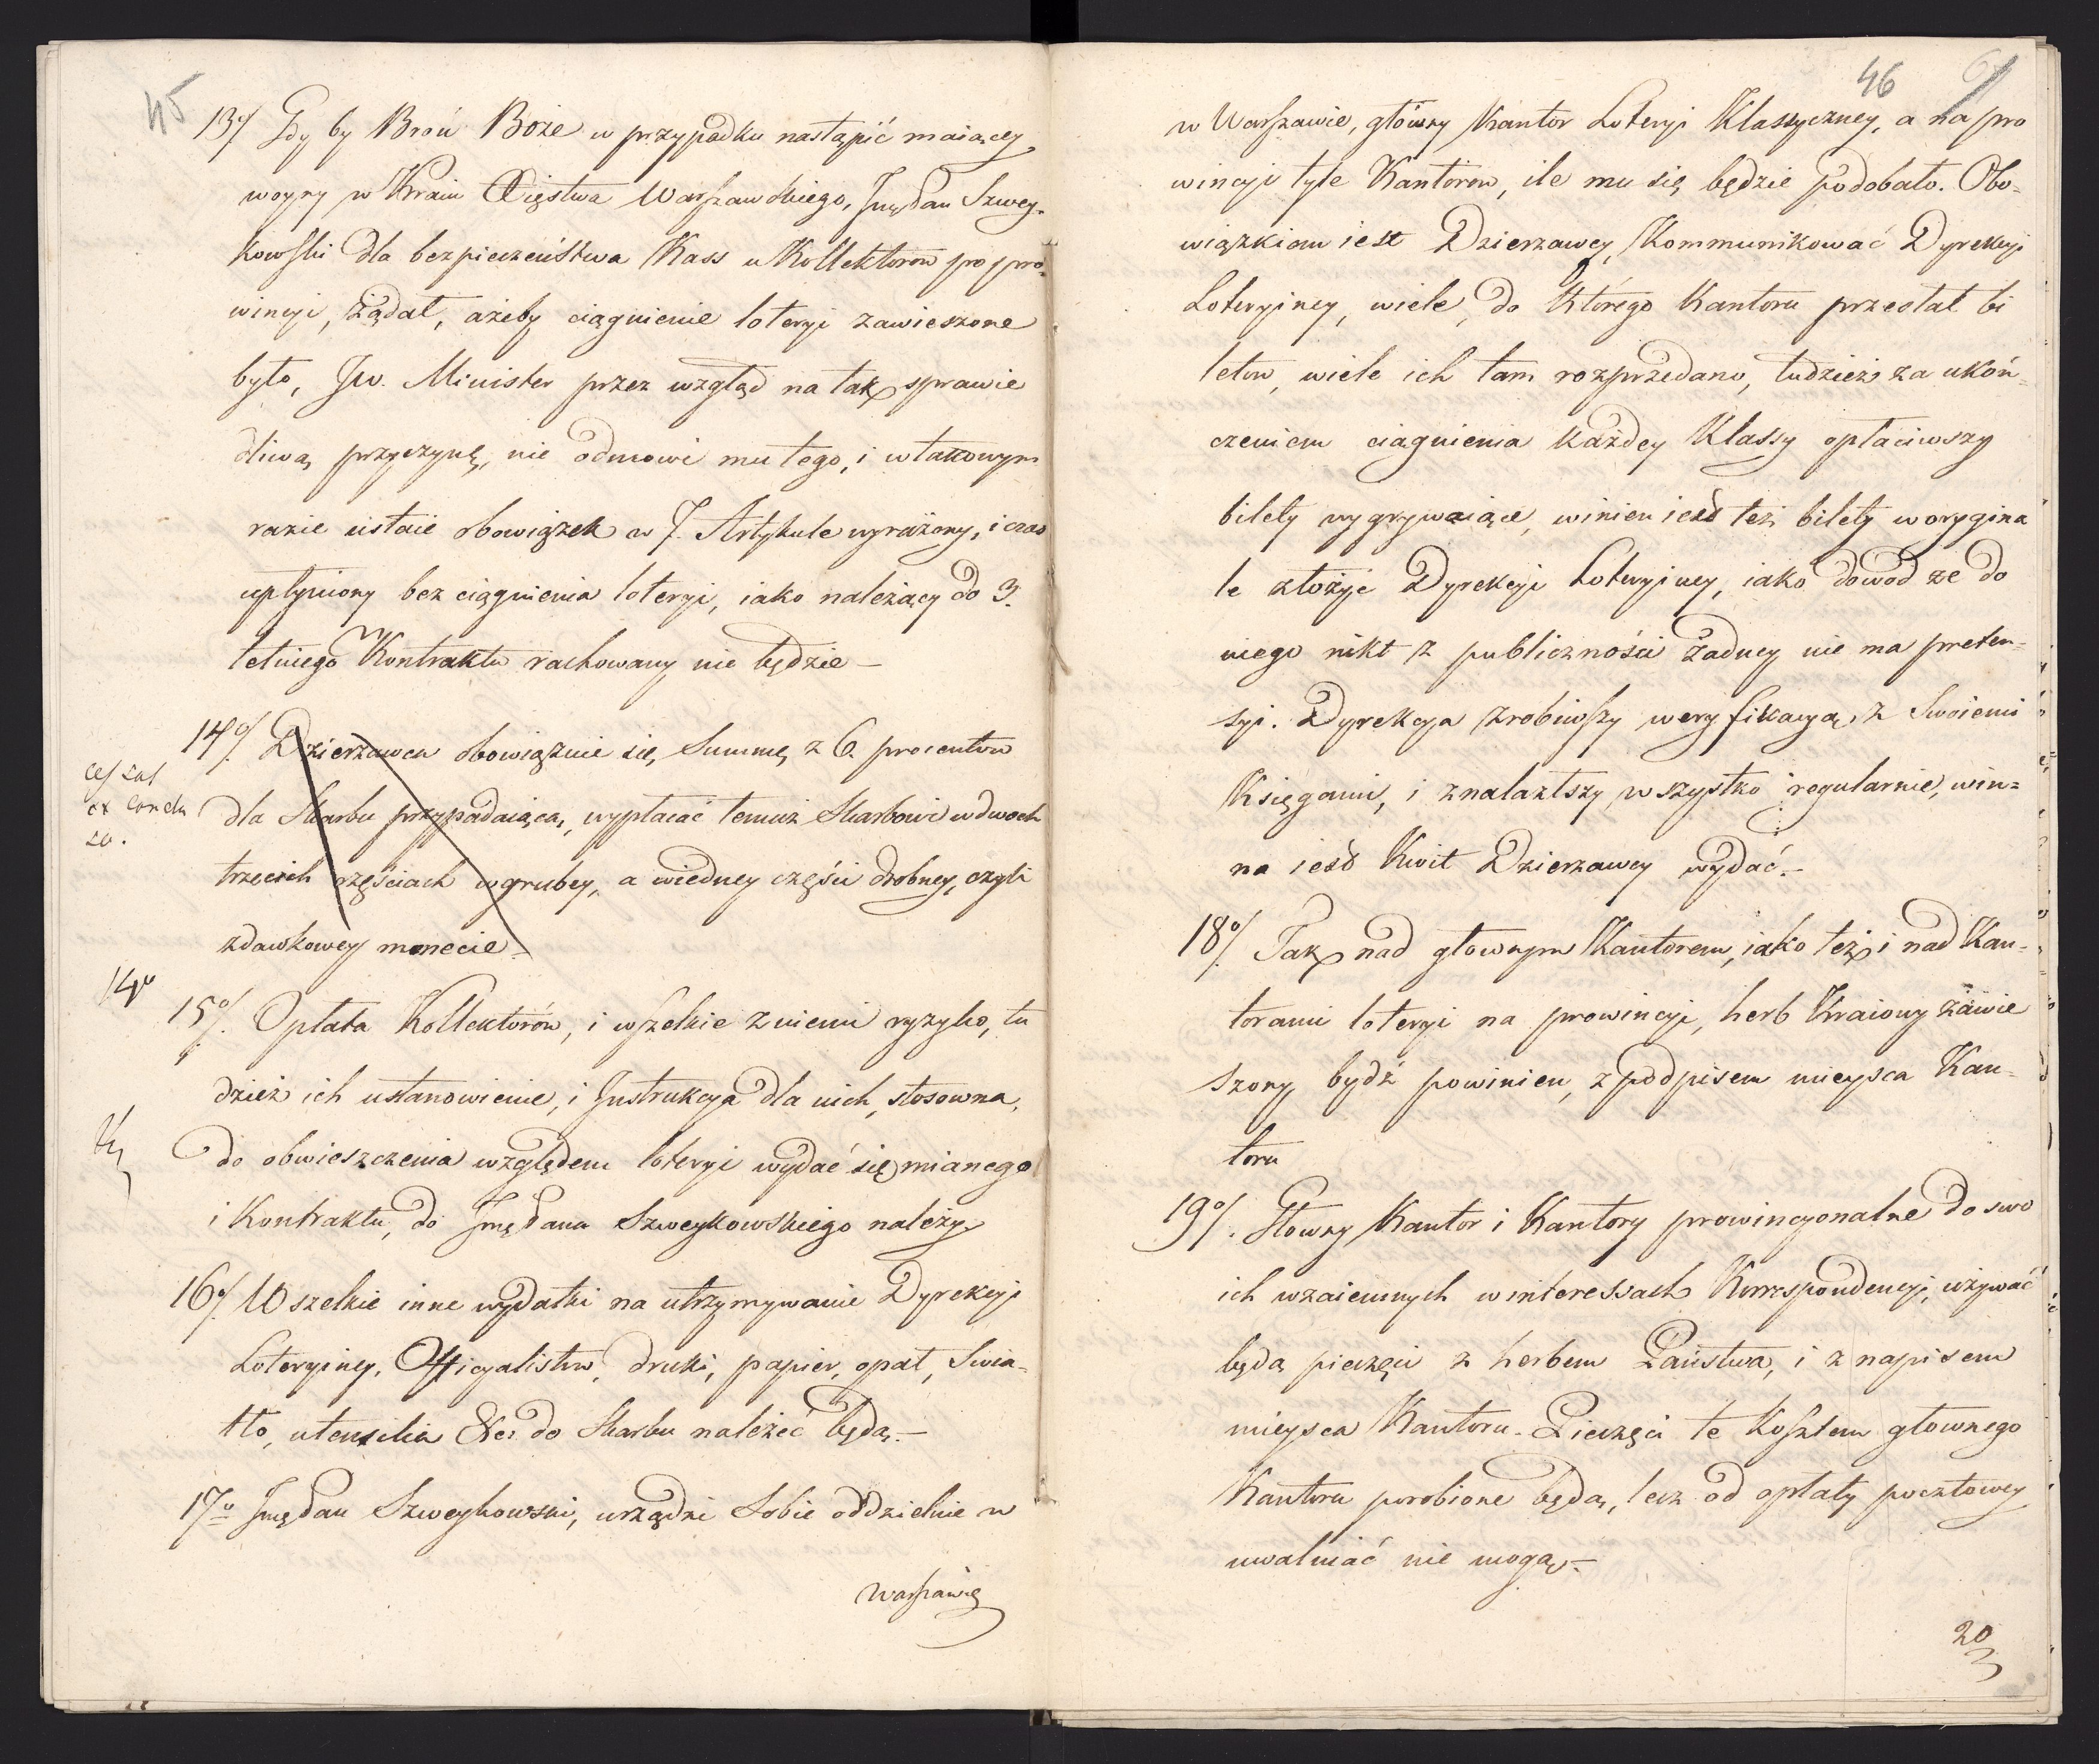 45
13o/ Gdy by Broń Boże w przypadku nastąpić maiącey
woyny w Kraiu Xięstwa Warszawskiego, Jmć Pan Szwey-
kowski dla bezpieczeństwa Kass u Kollektorow po pro-
wincyi, żądał, ażeby ciągnienie loteryi zawieszone
było, JW. Minister przez wzgląd na tak sprawie
dliwą przyczynę, nie odmowi mu tego, i w takowym
razie ustaie obowiązek w 7. Artykule wyrażony, i czas
upłyniony bez ciągnienia loteryi, iako należący do 3.
letniego Kontraktu rachowany nie będzie –
14o/. Dzierzawca obowiązuie się, Summę z 6. procentow
cessat
ex condu
so.
dla Skarbu przypadaiącą, wypłacać temuż Skarbowi w dwoch
trzecich częściach w grubey, a w iedney części drobney, czyli
zdawkowey monecie –
14o
15o/. Opłata Kollektorów, i wszelkie z niemi ryzyko, tu
dzież ich ustanowienie, i Instrukcya dla nich, stosowna,
do obwieszczenia względem loteryi wydać się mianego
i Kontraktu, do Jmć Pana Szweykowskiego należy
16o/. Wszelkie inne wydatki na utrzymywanie Dyrekcyi
Loteryiney, Officyalistow, druki, papier, opał, Swia-
tło, utensilia &c: do Skarbu należeć będą. –
17o Jmć Pan Szweykowski, urządzi Sobie oddzielnie w
Warszawie
46
w Warszawie, główny Kantor Loteryi Klassyczney, a na pro
wincyi tyle Kantorow, ile mu się będzie podobało. Obo-
wiązkiem iest Dzierzawcy, Kommunikować Dyrekcyi
Loteryiney, wiele, do którego Kantoru przesłał bi
letow, wiele ich tam rozprzedano, tudzież za ukoń-
czeniem ciągnienia każdey Klassy opłaciwszy
bilety wygrywaiące, winien iest też bilety w orygina
le złożyć Dyrekcyi Loteryiney, iako dowod ze do
niego nikt z publiczności żadney nie ma preten-
syi. Dyrekcya zrobiwszy weryfikacyą z Swoiemi
Księgami, i znalazłszy wszystko regularnie, win=
na iest Kwit Dzierzawcy wydać. –
18o/. Tak nad głownym Kantorem, iako też i nad Kan-
torami loteryi na prowincyi, herb Kraiowy zawie
szony bydź powinien, z podpisem mieysca Kan-
toru
19o/. Głowny Kantor i Kantory prowincyonalne do swo
ich wzaiemnych w interessach Korrespondencyi, używać
będą pieczęci z herbem Państwa, i z napisem
mieysca Kantoru. Pieczęci te Kosztem głownego
Kantoru porobione będą, lecz od opłaty pocztowey
uwalniać nie mogą. –
20